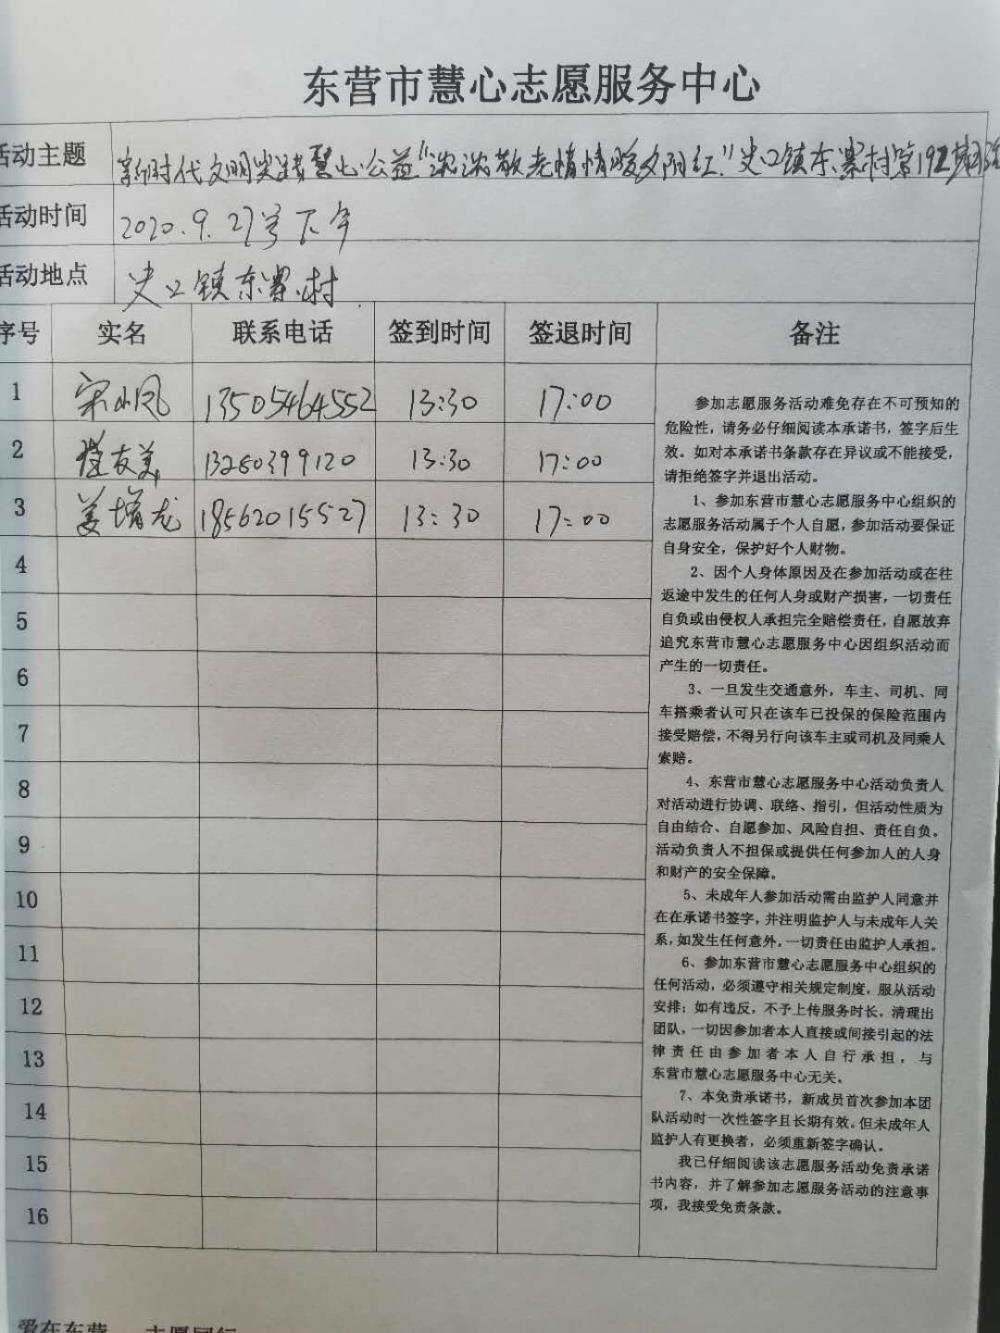 东营市慧心志愿服务中心
活动主题 新时代文明实践慧心公益"浓浓敬老情情暖夕阳红"史口镇东寨村第192期活
活动时间 2020.9.27号下午
活动地点 史口镇东寨村
序号 实名 联系电话 签到时间 签退时间 备注
1 宋小凤 13505464552 13:30 17:00
2 崔友美 13280399120 13:30 17:00
3 姜增龙 18562015527 13:30 17:00
4
5
6
7
8
9
10
11
12
13
14
15
16
参加志愿服务活动难免存在不可预知的
危险性，请务必仔细阅读本承诺书，签字后生
效。如对本承诺书条款存在异议或不能接受，
请拒绝签字并退出活动。
1、参加东营市慧心志愿服务中心组织的
志愿服务活动属于个人自愿，参加活动要保证
自身安全，保护好个人财物。
2、因个人身体原因及在参加活动或在往
返途中发生的任何人身或财产损害，一切责任
自负或由侵权人承担完全赔偿责任，自愿放弃
追究东营市慧心志愿服务中心因组织活动而
产生的一切责任。
3、一旦发生交通意外，车主、司机、同
车搭乘者认可只在该车已投保的保险范围内
接受赔偿，不得另行向该车主或司机及同乘人
索赔。
4、东营市慧心志愿服务中心活动负责人
对活动进行协调、联络、指引，但活动性质为
自由结合、自愿参加、风险自担、责任自负。
活动负责人不担保或提供任何参加人的人身
和财产的安全保障。
5、未成年人参加活动需由监护人同意并
在在承诺书签字，并注明监护人与未成年人关
系，如发生任何意外，一切责任由监护人承担。
6、参加东营市慧心志愿服务中心组织的
任何活动，必须遵守相关规定制度，服从活动
安排；如有违反，不予上传服务时长，清理出
团队，一切因参加者本人直接或间接引起的法
律责任由参加者本人自行承担，与
东营市慧心志愿服务中心无关。
7、本免责承诺书，新成员首次参加本团
队活动时一次性签字且长期有效。但未成年人
监护人有更换者，必须重新签字确认。
我已仔细阅读该志愿服务活动免责承诺
书内容，并了解参加志愿服务活动的注意事
项，我接受免责条款。
爱在东营 志愿同行